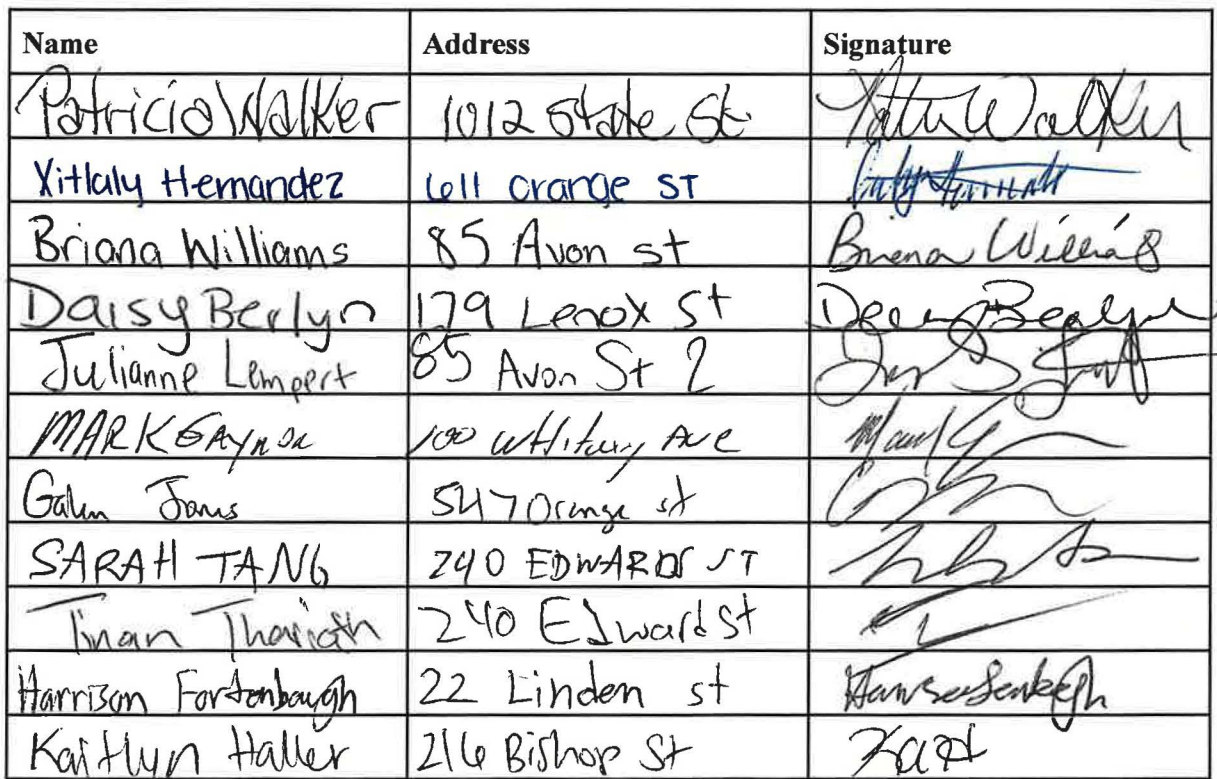 Name Address Signature
Patricia Walker 1012 State St Patti Walker
Xitlaly Hernandez 611 orange ST
Briana Williams 85 Avon st Briana Williams
Daisy Berlyn 179 Lenox St Berlyn
Julianne Lempert 85 Avon St 2
MARK GAYNOR 100 Whitney Ave Mark
Galen 547 Orange st
SARAH TANG 240 EDWARDS ST
240 Edward St
Harrison Fortenbaugh 22 Linden st
Kaitlyn Haller 216 Bishop St